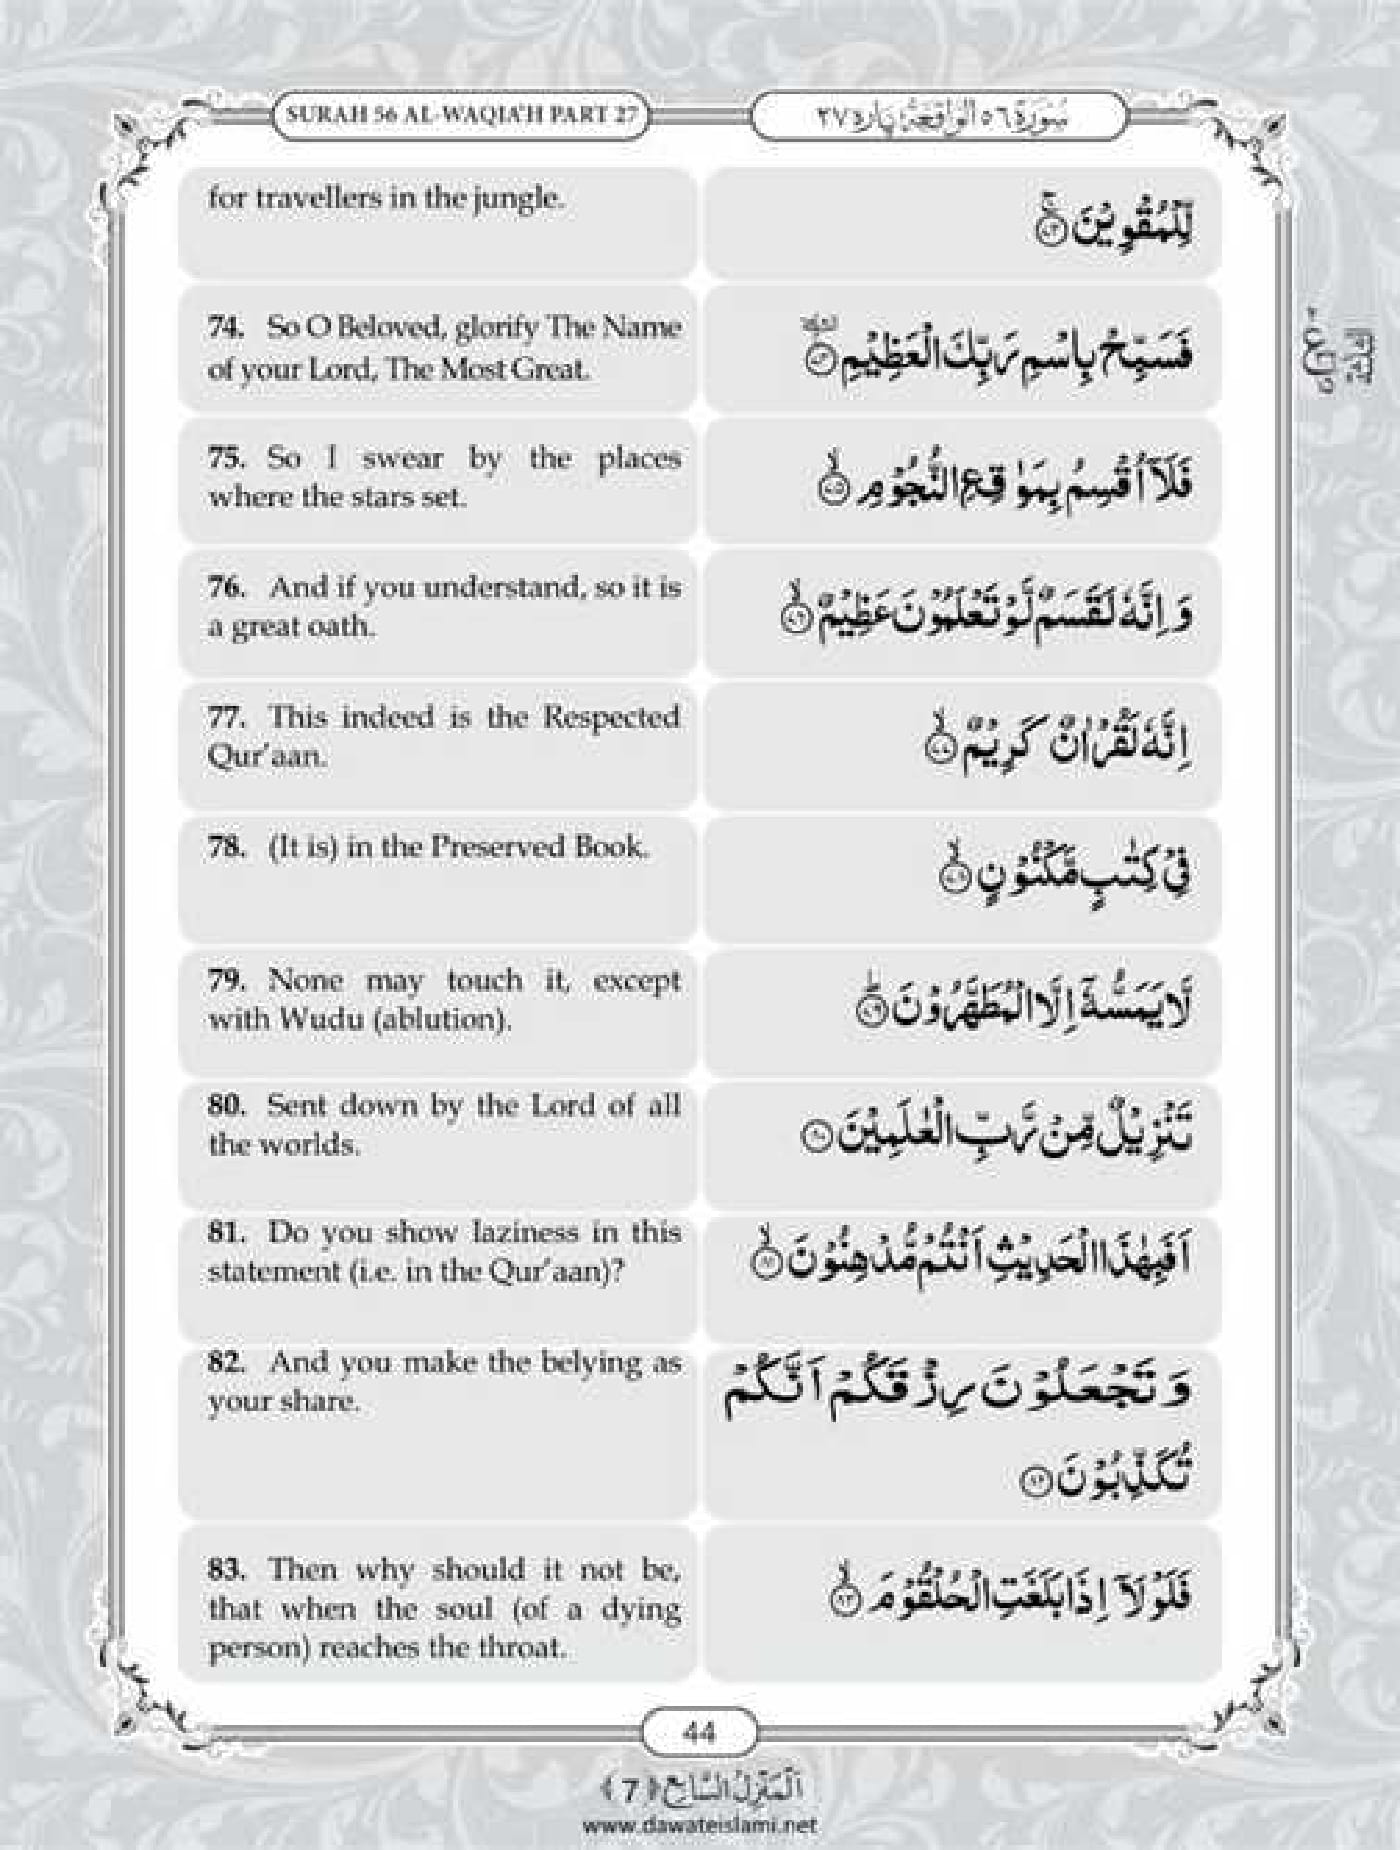 SURAH 56 AL-WAQIA'H PART 27
سُوْرَة ٥٦ الْوَاقِعَة پَاره ٢٧
for travellers in the jungle.
لِّلْمُقْوِیْنَ ﴿۷۳﴾
74. So O Beloved, glorify The Name
of your Lord, The Most Great.
فَسَبِّحْ بِاسْمِ رَبِّكَ الْعَظِیْمِ ﴿۷۴﴾
75. So I swear by the places
where the stars set.
فَلَاۤ اُقْسِمُ بِمَوٰقِعِ النُّجُوْمِ ﴿۷۵﴾
76. And if you understand, so it is
a great oath.
وَ اِنَّهٗ لَقَسَمٌ لَّوْ تَعْلَمُوْنَ عَظِیْمٌ ﴿۷۶﴾
77. This indeed is the Respected
Qur'aan.
اِنَّهٗ لَقُرْاٰنٌ كَرِیْمٌ ﴿۷۷﴾
78. (It is) in the Preserved Book.
فِیْ كِتٰبٍ مَّكْنُوْنٍ ﴿۷۸﴾
79. None may touch it, except
with Wudu (ablution).
لَّا یَمَسُّهٗۤ اِلَّا الْمُطَهَّرُوْنَ ﴿۷۹﴾
80. Sent down by the Lord of all
the worlds.
تَنْزِیْلٌ مِّنْ رَّبِّ الْعٰلَمِیْنَ ﴿۸۰﴾
81. Do you show laziness in this
statement (i.e. in the Qur'aan)?
اَفَبِهٰذَا الْحَدِیْثِ اَنْتُمْ مُّدْهِنُوْنَ ﴿۸۱﴾
82. And you make the belying as
your share.
وَ تَجْعَلُوْنَ رِزْقَكُمْ اَنَّكُمْ
تُكَذِّبُوْنَ ﴿۸۲﴾
83. Then why should it not be,
that when the soul (of a dying
person) reaches the throat.
فَلَوْ لَاۤ اِذَا بَلَغَتِ الْحُلْقُوْمَ ﴿۸۳﴾
44
اَلْمَنْزِلُ السَّابِع ﴿7﴾
www.dawateislami.net